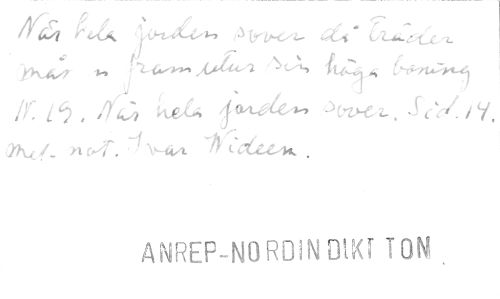 När hela jorden sover då träder
mån n fram utur sin höga boning
N. 19. När hela jorden sover. Sid. 14.
mel. not. Ivar Wideen.
ANREP-NORDIN DIKT TON